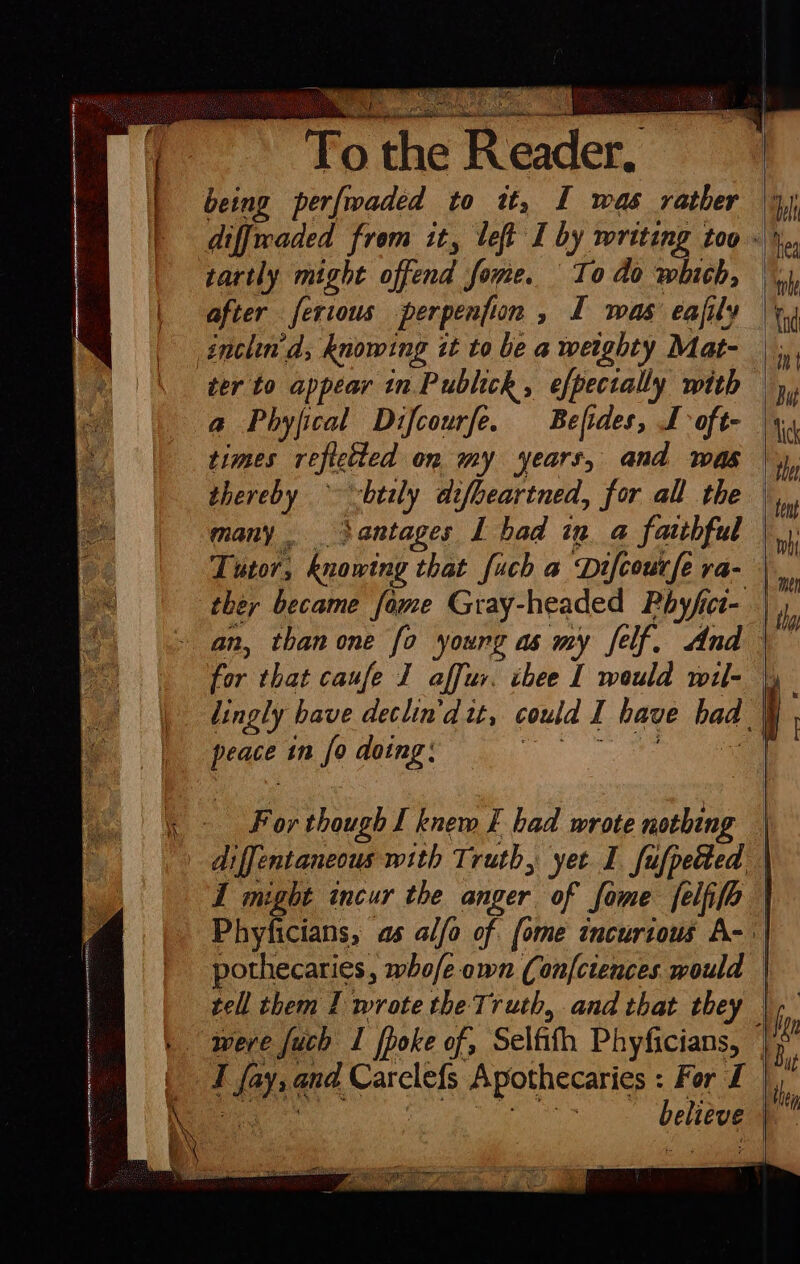 To the Reader.
being perſwaded to it, I was rather
diſſwaded from it, leſt I by writing too
tartly might offend ſome. To do which,
after ſerious perpenſion, I was eaſily
inclin'd, knowing it to be a weighty Mat-
ter to appear in Publick, eſpecially with
a Phyſical Diſcourſe. Beſides, I oft-
times reflected on my years, and was
thereby diſheartned, for all the
many antages I had in a faithful
Tutor, knowing that ſuch a Diſcourſe ra-
ther became ſome Gray-headed Phyſici-
an, than one ſo young as my ſelf. And
for that cauſe I aſſur. thee I would wil-
lingly have declin'd it, could I have had
peace in ſo doing:
For though I knew I had wrote nothing
diſſentaneous with Truth, yet I ſuſpected
I might incur the anger of ſome ſelfiſh
Phyſicians, as alſo of ſome incurious A-
pothecaries, whoſe own Conſciences would
tell them I wrote the Truth, and that they
were ſuch I ſpoke of, Selfiſh Phyſicians,
I ſay, and Careleſs Apothecaries: For I
believe